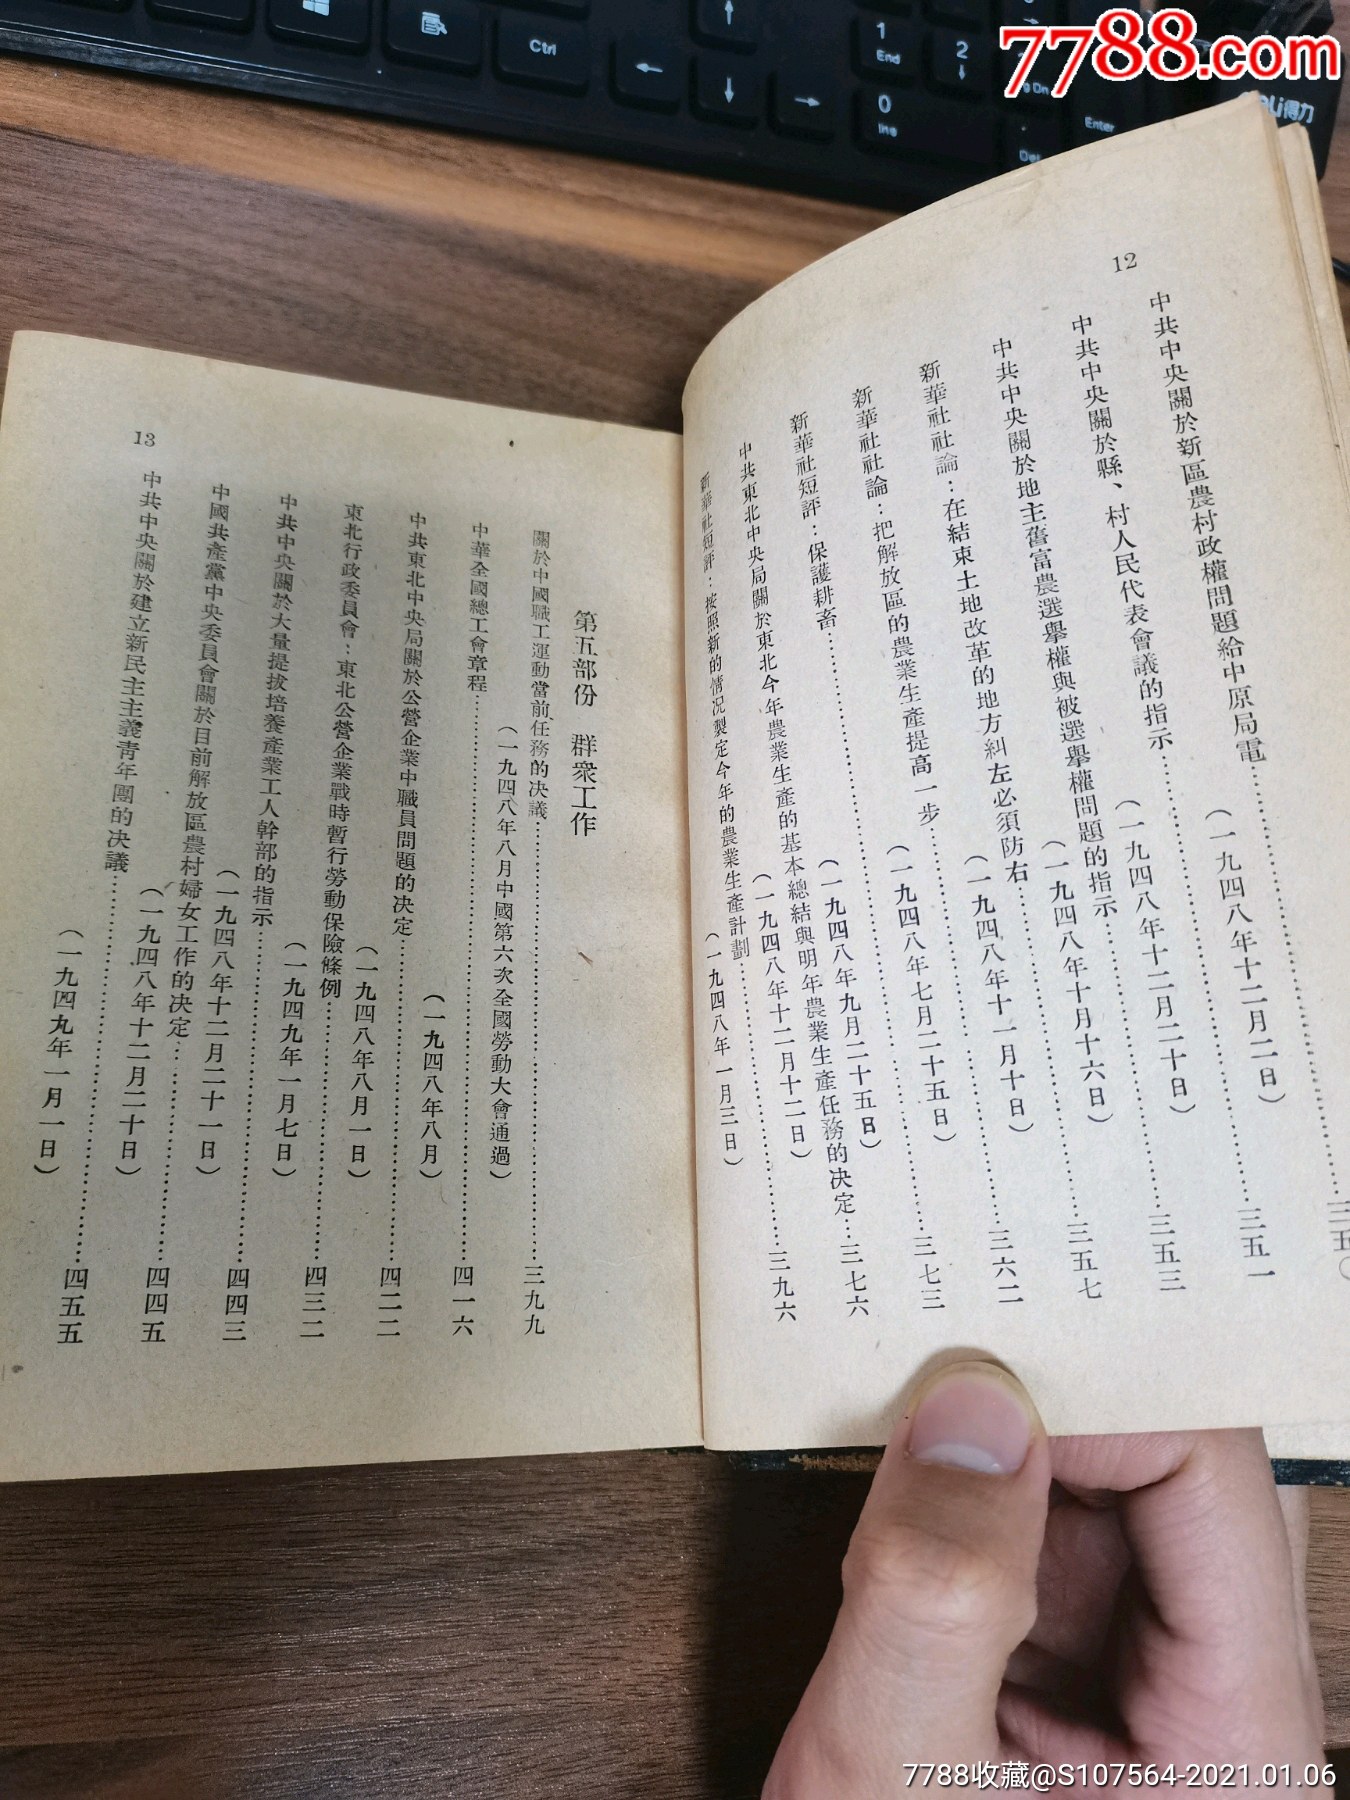 7788.com
Ctrl
1
End
2
0
Ins
Enter
Del
deli得力
12
三五〇
中共中央關於新區農村政權問題給中原局電
(一九四八年十二月二日)
三五一
中共中央關於縣、村人民代表會議的指示
(一九四八年十二月二十日)
三五三
中共中央關於地主舊富農選擧權與被選擧權問題的指示
(一九四八年十月十六日)
三五七
新華社社論：在結束土地改革的地方糾左必須防右
(一九四八年十一月十日)
三六二
新華社社論：把解放區的農業生產提高一步
(一九四八年七月二十五日)
三七三
新華社短評：保護耕畜
(一九四八年九月二十五日)
中共東北中央局關於東北今年農業生產的基本總結與明年農業生產任務的決定…三七六
(一九四八年十二月十二日)
新華社短評：按照新的情况製定今年的農業生產計劃
(一九四八年一月三日)
三九六
13
第五部份 群衆工作
關於中國職工運動當前任務的決議
(一九四八年八月中國第六次全國勞動大會通過)
三九九
中華全國總工會章程
四一六
中共東北中央局關於公營企業中職員問題的決定
(一九四八年八月)
四二二
東北行政委員會：東北公營企業戰時暫行勞動保險條例
(一九四八年八月一日)
四三二
中共中央關於大量提拔培養產業工人幹部的指示
(一九四九年一月七日)
四四三
中國共產黨中央委員會關於目前解放區農村婦女工作的決定
(一九四八年十二月二十一日)
四四五
中共中央關於建立新民主主義靑年團的決議
(一九四八年十二月二十日)
四五五
(一九四九年一月一日)
7788收藏@S107564-2021.01.06